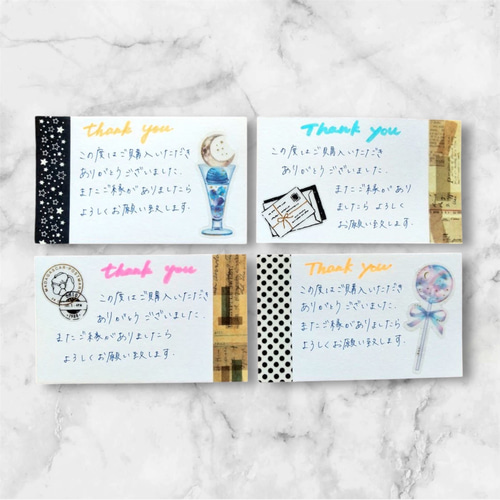 thank you
この度はご購入いただき
ありがとうございました.
またご縁がありましたら
よろしくお願い致します.
Thank you
この度はご購入いただき
ありがとうございました.
またご縁があり
ましたらよろしく
お願い致します.
thank you
この度はご購入いただき
ありがとうございました.
またご縁がありましたら
よろしくお願い致します.
Thank you
この度はご購入いただき
ありがとうございました.
またご縁がありましたら
よろしくお願い致します.